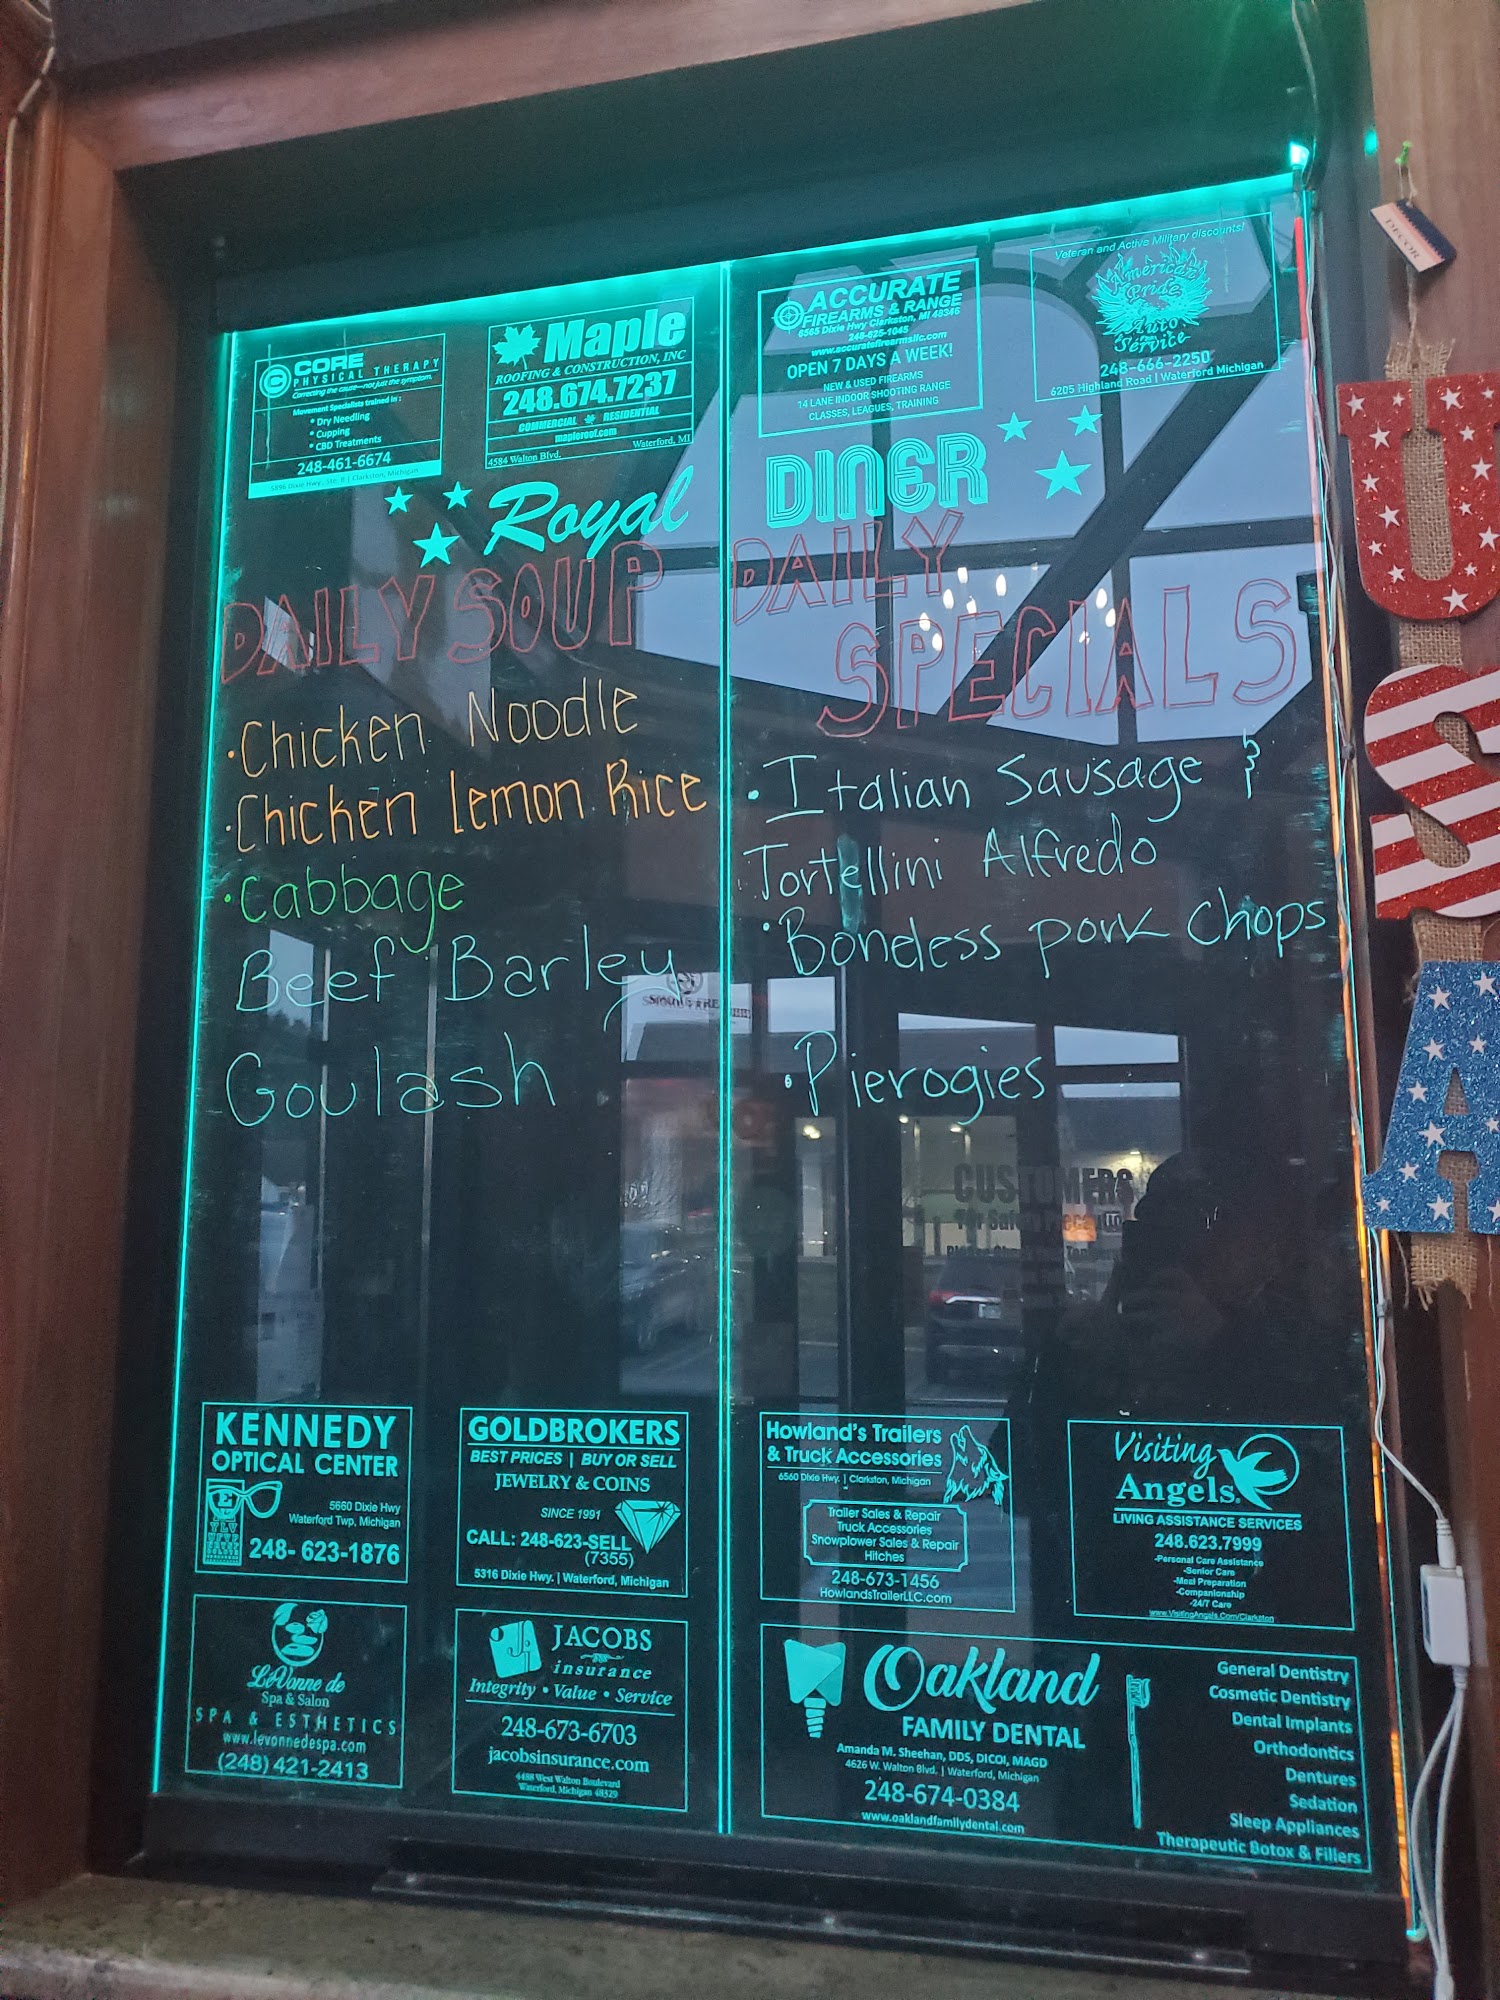 CORE
PHYSICAL THERAPY
Correcting the cause—not just the symptom.
Movement Specialists trained in :
* Dry Needling
* Cupping
* CBD Treatments
248-461-6674
5896 Dixie Hwy., Ste. B | Clarkston, Michigan
Maple
ROOFING & CONSTRUCTION, INC
248.674.7237
COMMERCIAL RESIDENTIAL
mapleroof.com
4584 Walton Blvd. Waterford, MI
ACCURATE
FIREARMS & RANGE
6565 Dixie Hwy Clarkston, MI 48346
248-625-1045
www.accuratefirearmsllc.com
OPEN 7 DAYS A WEEK!
NEW & USED FIREARMS
14 LANE INDOOR SHOOTING RANGE
CLASSES, LEAGUES, TRAINING
Veteran and Active Military discounts!
American
Pride
Auto
Service
248-666-2250
6205 Highland Road | Waterford Michigan
DECOR
Royal DINER
DAILY SOUP
·Chicken Noodle
·Chicken Lemon Rice
·Cabbage
Beef Barley
Goulash
DAILY
SPECIALS
·Italian Sausage &
Tortellini Alfredo
·Boneless pork chops
·Pierogies
USA
CUSTOMERS
KENNEDY
OPTICAL CENTER
5660 Dixie Hwy
Waterford Twp, Michigan
248- 623-1876
GOLDBROKERS
BEST PRICES | BUY OR SELL
JEWELRY & COINS
SINCE 1991
CALL: 248-623-SELL
(7355)
5316 Dixie Hwy. | Waterford, Michigan
Howland's Trailers
& Truck Accessories
6560 Dixie Hwy. | Clarkston, Michigan
Trailer Sales & Repair
Truck Accessories
Snowplower Sales & Repair
Hitches
248-673-1456
HowlandsTrailerLLC.com
Visiting
Angels
LIVING ASSISTANCE SERVICES
248.623.7999
-Personal Care Assistance
-Senior Care
-Meal Preparation
-Companionship
-24/7 Care
www.VisitingAngels.Com/Clarkston
LéVonne de
Spa & Salon
SPA & ESTHETICS
www.levonnedespa.com
(248) 421-2413
JACOBS
insurance
Integrity • Value • Service
248-673-6703
jacobsinsurance.com
4488 West Walton Boulevard
Waterford, Michigan 48329
Oakland
FAMILY DENTAL
Amanda M. Sheehan, DDS, DICOI, MAGD
4626 W. Walton Blvd. | Waterford, Michigan
248-674-0384
www.oaklandfamilydental.com
General Dentistry
Cosmetic Dentistry
Dental Implants
Orthodontics
Dentures
Sedation
Sleep Appliances
Therapeutic Botox & Fillers